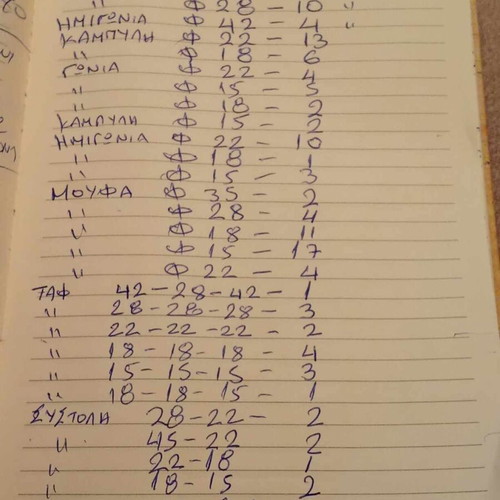 Φ 28 - 10 "
ΗΜΙΓΩΝΙΑ Φ 42 - 4 "
ΚΑΜΠΥΛΗ Φ 22 - 13
" Φ 18 - 6
ΓΩΝΙΑ Φ 22 - 4
" Φ 15 - 5
" Φ 18 - 2
ΚΑΜΠΥΛΗ Φ 15 - 2
ΗΜΙΓΩΝΙΑ Φ 22 - 10
" Φ 18 - 1
" Φ 15 - 3
ΜΟΥΦΑ Φ 35 - 2
" Φ 28 - 4
" Φ 18 - 11
" Φ 15 - 17
" Φ 22 - 4
ΤΑΦ 42-28-42- 1
" 28-28-28- 3
" 22-22-22- 2
" 18-18-18- 4
" 15-15-15- 3
" 18-18-15- 1
ΣΥΣΤΟΛΗ 28-22- 2
" 45-22 2
" 22-18 1
" 18-15 2